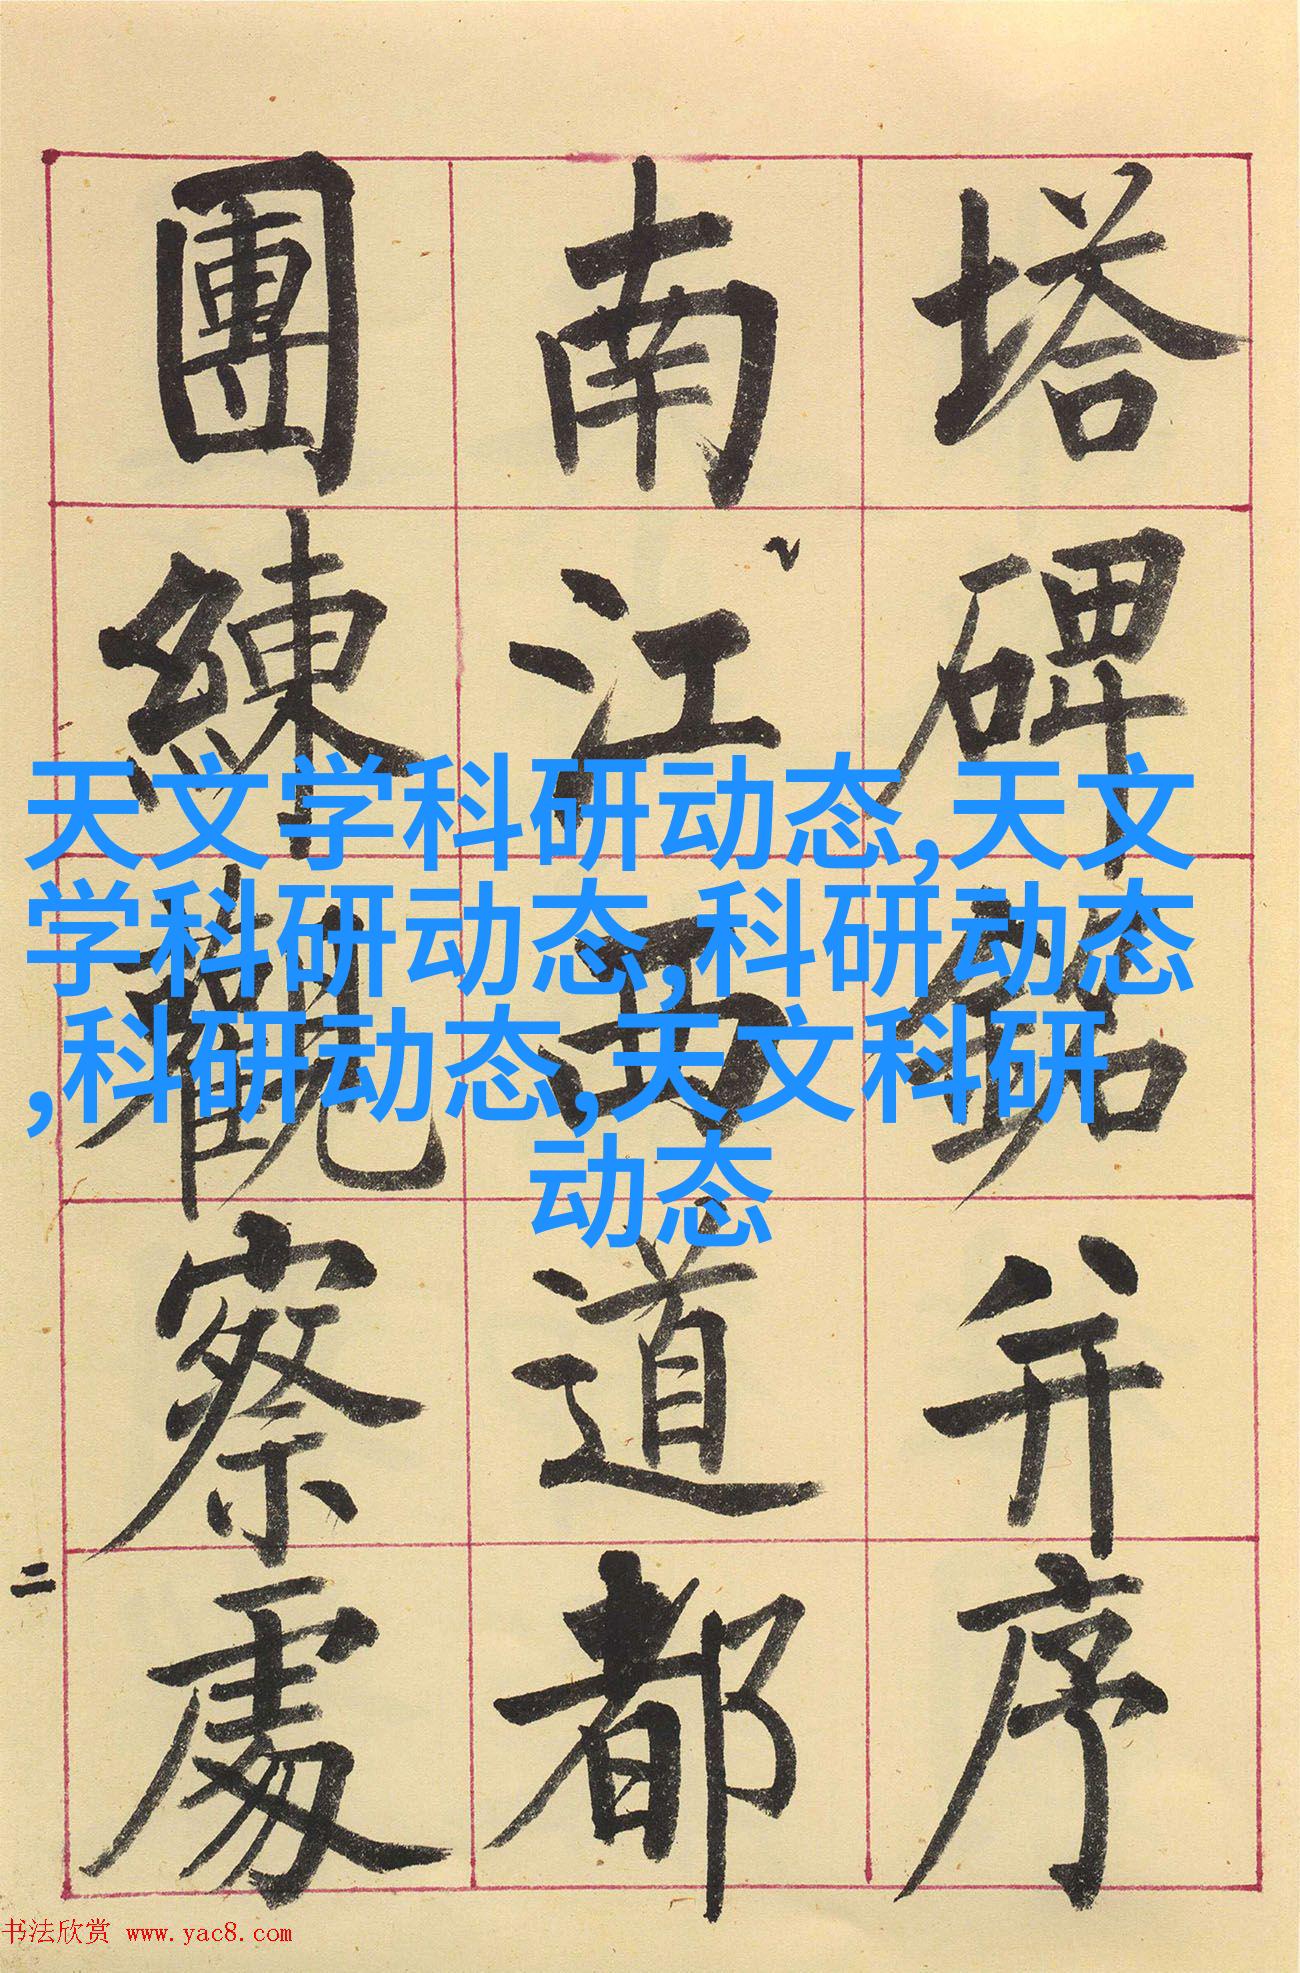 塔碑銘并序
南江西道都
團練觀察處
二
天文学科研动态,天文
学科研动态,科研动态
,科研动态,天文科研
动态
书法欣赏 www.yac8.com